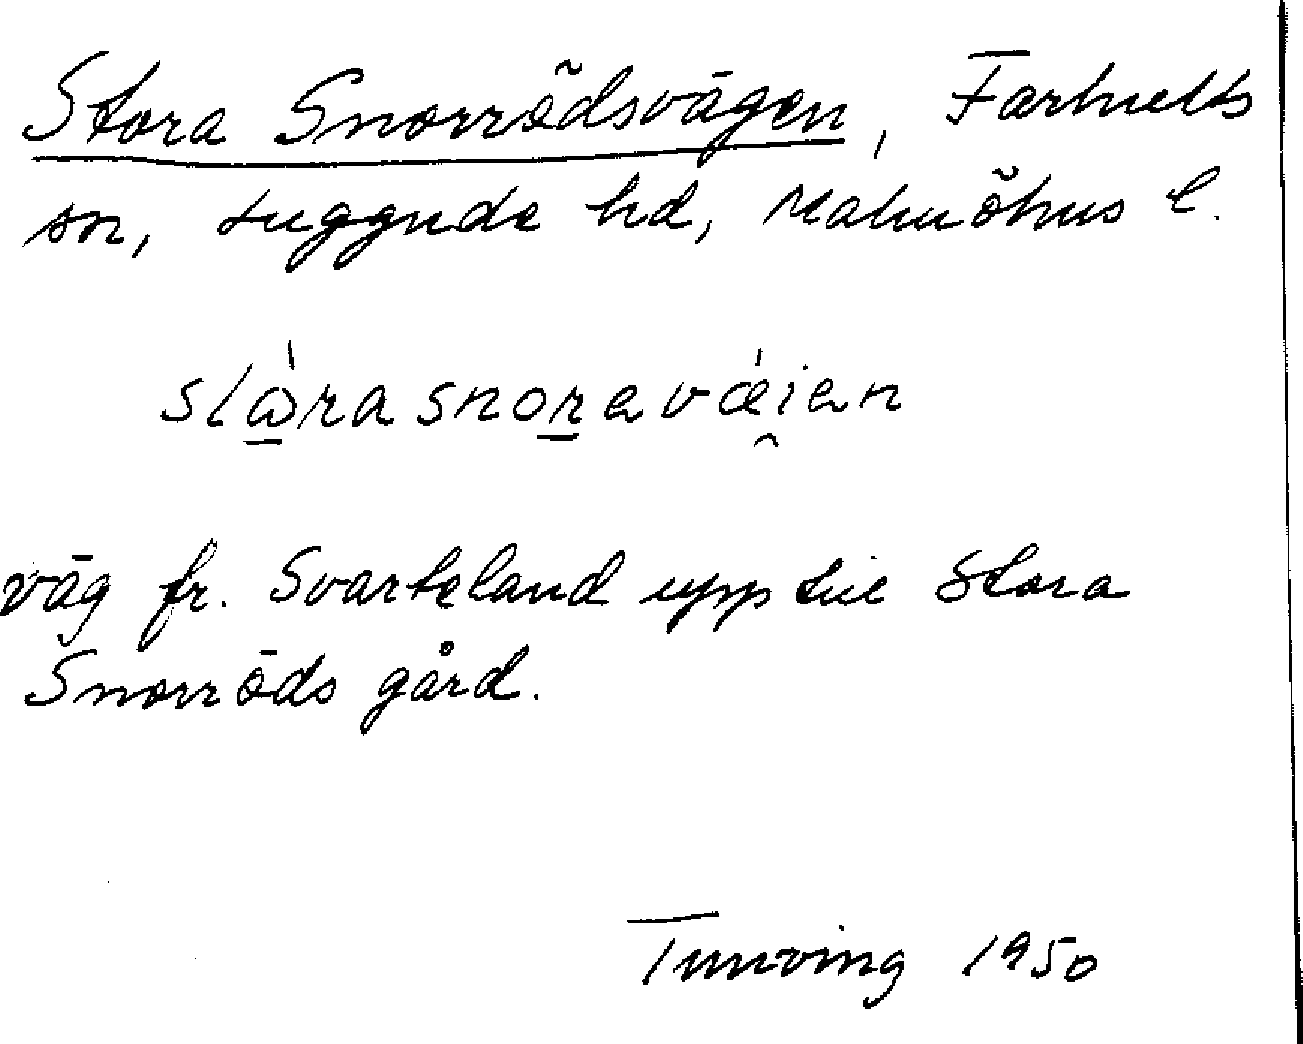 Stora Snorrödsvägen, Farhults
sn, Luggude hd, Malmöhus l.
stωra snoravæien
väg fr. Svarteland upp till Stora
Snorröds gård.
Tunving 1950